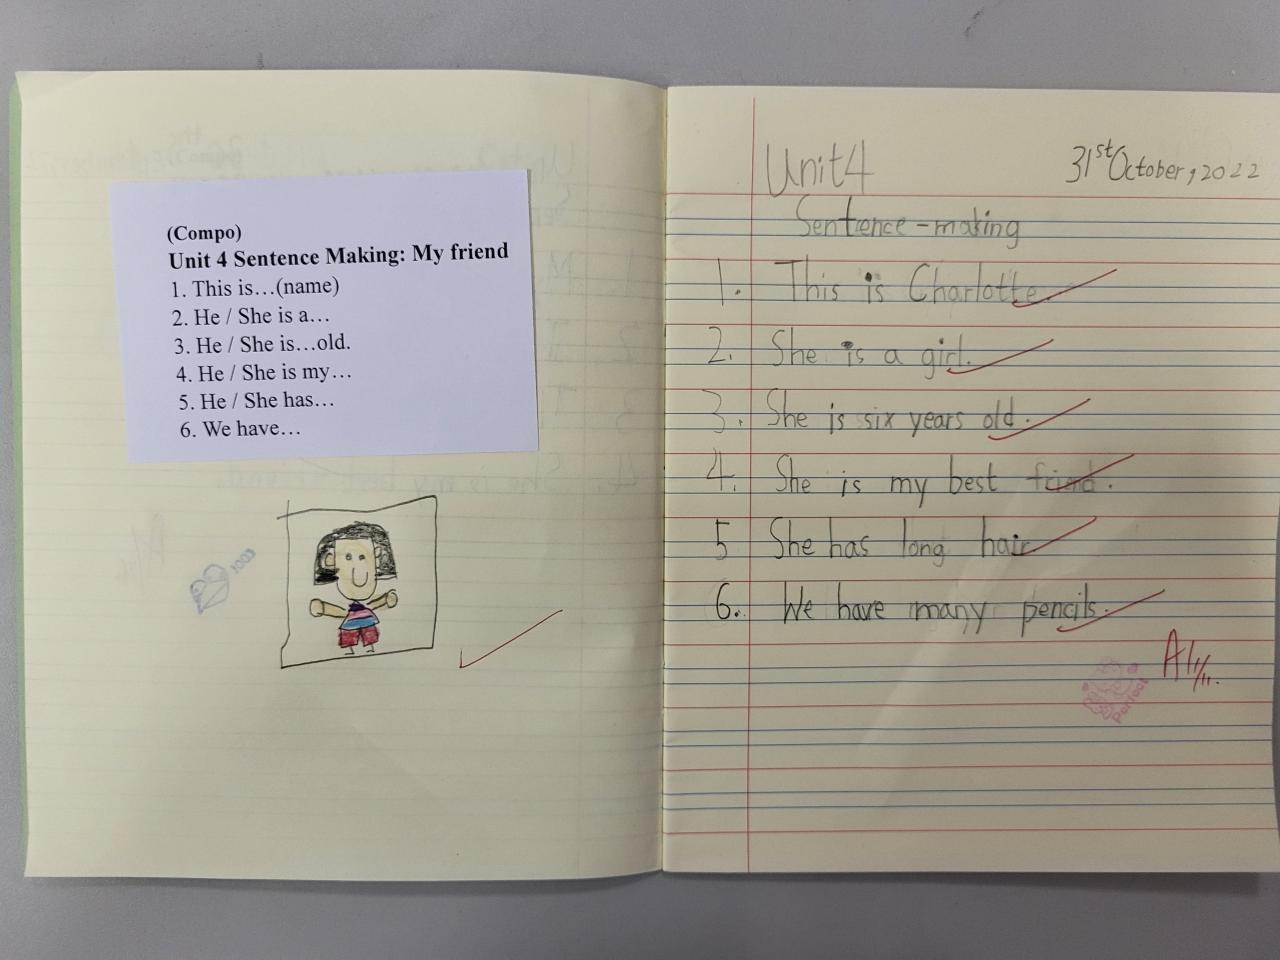 (Compo)
Unit 4 Sentence Making: My friend
1. This is…(name)
2. He / She is a…
3. He / She is…old.
4. He / She is my…
5. He / She has…
6. We have…
cool
Unit4
31st October, 2022
Sentence-making
1. This is Charlotte.
2. She is a girl.
3. She is six years old.
4. She is my best friend.
5 She has long hair
6. We have many pencils.
A 1/11.
Perfect